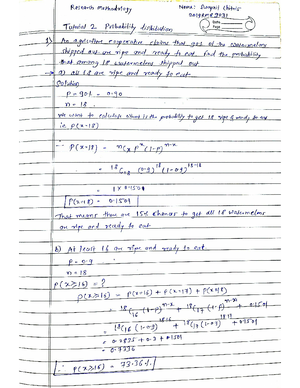 Research Methodology
Name: Swapnil Chitnis
Tutorial 2 Probability distribution
Date
Page
1) An agriculture cooperative claims that 90% of the watermelons
shipped out are ripe and ready to eat. find the probability
that among 18 watermelons shipped out
→ a) all 18 are ripe and ready to eat
Solution
P = 90% = 0.90
n = 18
we want to calculate what is the probability to get 18 ripe & ready to eat
i.e. p(x=18)
∴ P(x=18) = nCx P^x (1-P)^n-x
= 18C18 (0.9)^18 (1-0.9)^18-18
= 1 x 0.1501
P(x=18) = 0.1501
That means there are 15% chances to get all 18 watermelons
are ripe and ready to eat
b) At least 16 are ripe and ready to eat
P = 0.9
n = 18
p(x≥16) = ?
p(x≥16) = p(x=16) + p(x=17) + p(x=18)
= 0.2835 + 0.3 + 0.1501
= 0.7336
∴ p(x≥16) = 73.36%